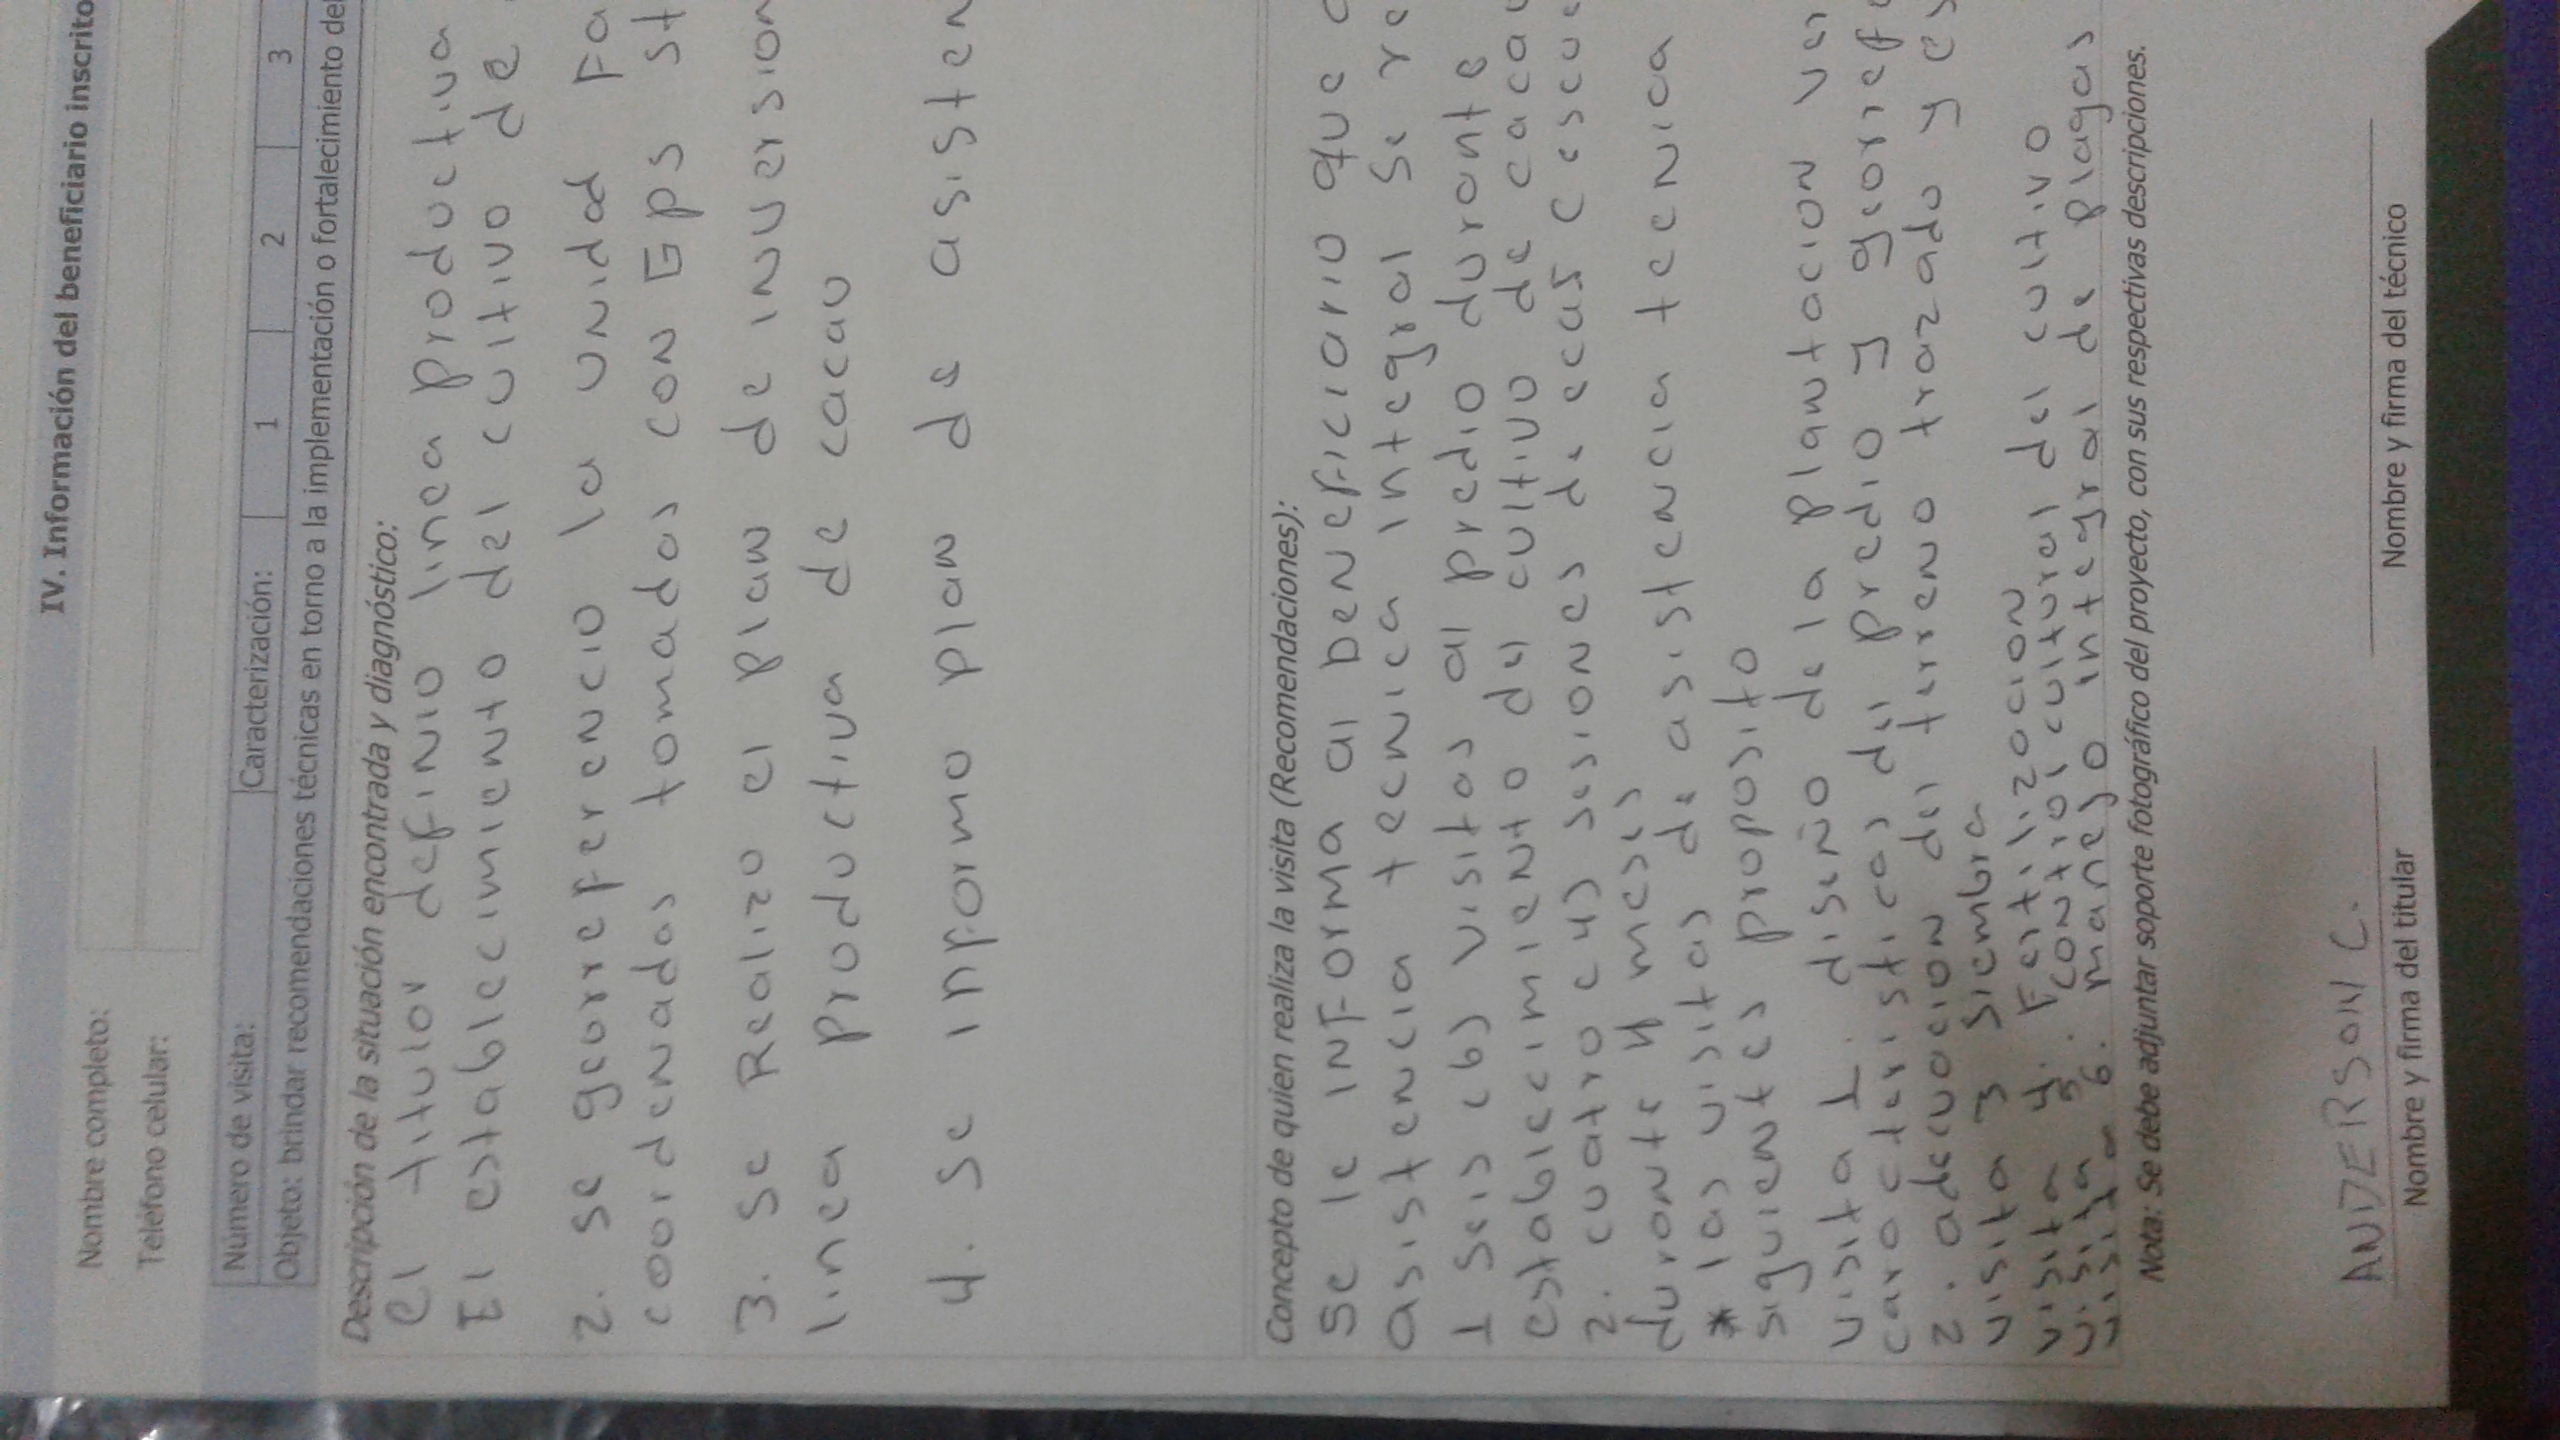 IV. Información del beneficiario inscrito
Nombre completo:
Teléfono celular:
Número de visita: Caracterización: 1 2 3
Objeto: brindar recomendaciones técnicas en torno a la implementación o fortalecimiento del
Descripción de la situación encontrada y diagnóstico:
El titular definio linea productiva
El establecimiento del cultivo de
2. se georreferencio la unidad Fa
coordenadas tomadas con Gps st
3. se Realizo el plan de inversion
linea productiva de cacao
4. se informo plan de asisten
Concepto de quien realiza la visita (Recomendaciones):
se le informa al beneficiario que
asistencia tecnica integral se re
1 seis (6) visitas al predio durante
establecimiento del cultivo de caca
2. cuatro (4) sesiones de ecas (escue
durante 4 meses
* las visitas de asistencia tecnica
siguientes proposito
visita 1. diseño de la plantacion ver
caracteristicas del predio y georief
2. adecuacion del terreno trazado y es
visita 3 siembra
visita 4. Fertilizacion
visita 5. control cultural del cultivo
visita 6. manejo integral de plagas
Nota: Se debe adjuntar soporte fotográfico del proyecto, con sus respectivas descripciones.
ANDERSON C.
Nombre y firma del titular Nombre y firma del técnico